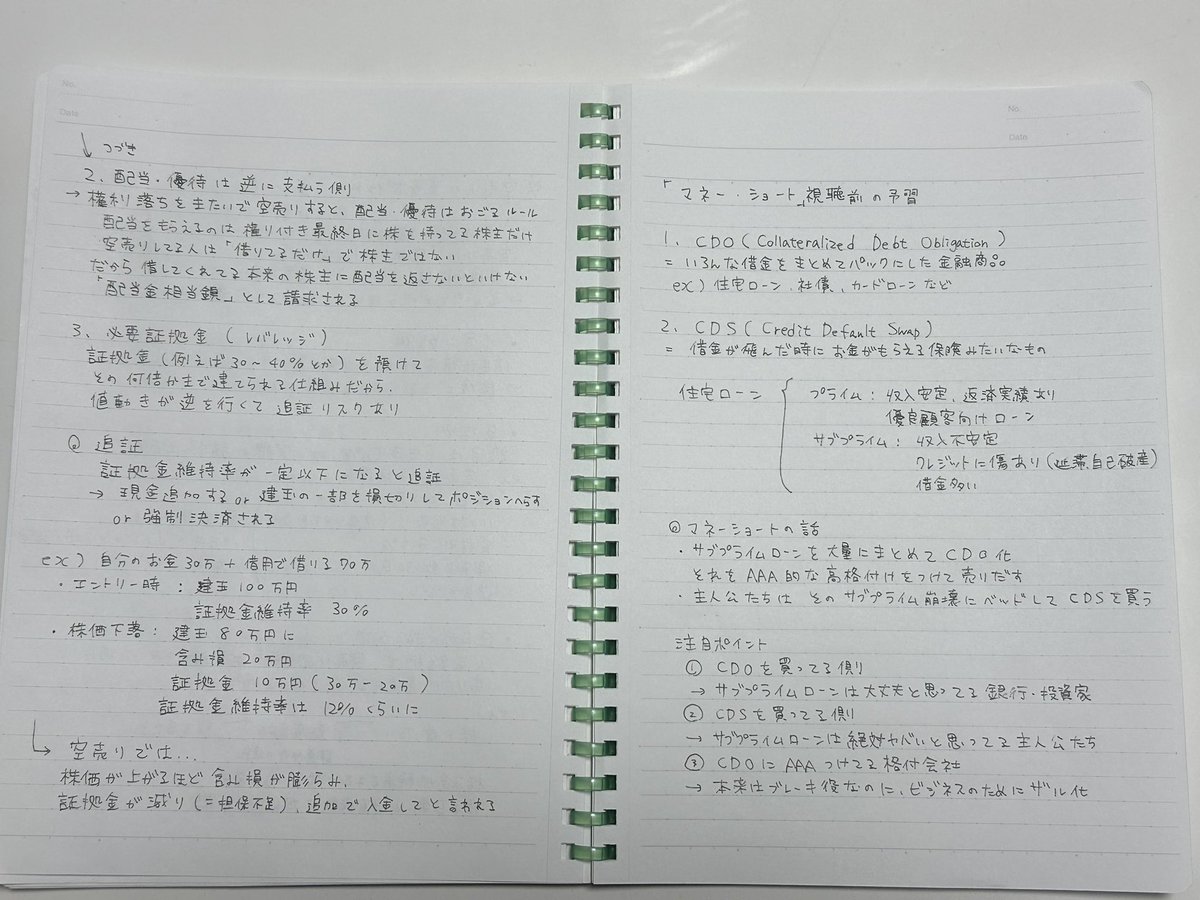 No.
Date
つづき
2、配当・優待は逆に支払う側
→ 権利落ちをまたいで空売りすると、配当・優待はおごるルール
配当をもらえるのは権り付き最終日に株を持ってる株主だけ
空売りしてる人は「借りてるだけ」で株主ではない
だから借してくれてる本来の株主に配当を返さないといけない
「配当金相当額」として請求される
3、必要証拠金（レバレッジ）
証拠金（例えば30〜40%とか）を預けて
その何倍かまで建てられる仕組みだから、
値動きが逆を行くて追証リスクあり
◎ 追証
証拠金維持率が一定以下になると追証
→ 現金追加する or 建玉の一部を損切りしてポジションへらす
or 強制決済される
ex）自分のお金30万 + 借用で借りる70万
・エントリー時：建玉100万円
証拠金維持率 30%
・株価下落：建玉80万円に
含み損 20万円
証拠金 10万円（30万-20万）
証拠金維持率は 12%くらいに
→ 空売りでは...
株価が上がるほど含み損が膨らみ、
証拠金が減り（=担保不足）、追加で入金してと言われる
No.
Date
「マネー・ショート」視聴前の予習
1、CDO（Collateralized Debt Obligation）
= いろんな借金をまとめてパックにした金融商品。
ex）住宅ローン、社債、カードローンなど
2、CDS（Credit Default Swap）
= 借金が飛んだ時にお金がもらえる保険みたいなもの
住宅ローン プライム：収入安定、返済実績あり
優良顧客向けローン
サブプライム：収入不安定
クレジットに傷あり（延滞、自己破産）
借金多い
◎ マネーショートの話
・サブプライムローンを大量にまとめてCDO化
それをAAA的な高格付けをつけて売りだす
・主人公たちはそのサブプライム崩壊にベッドしてCDSを買う
注目ポイント
① CDOを買ってる側
→ サブプライムローンは大丈夫と思ってる銀行・投資家
② CDSを買ってる側
→ サブプライムローンは絶対ヤバいと思ってる主人公たち
③ CDOにAAAつけてる格付会社
→ 本来はブレーキ役なのに、ビジネスのためにザル化